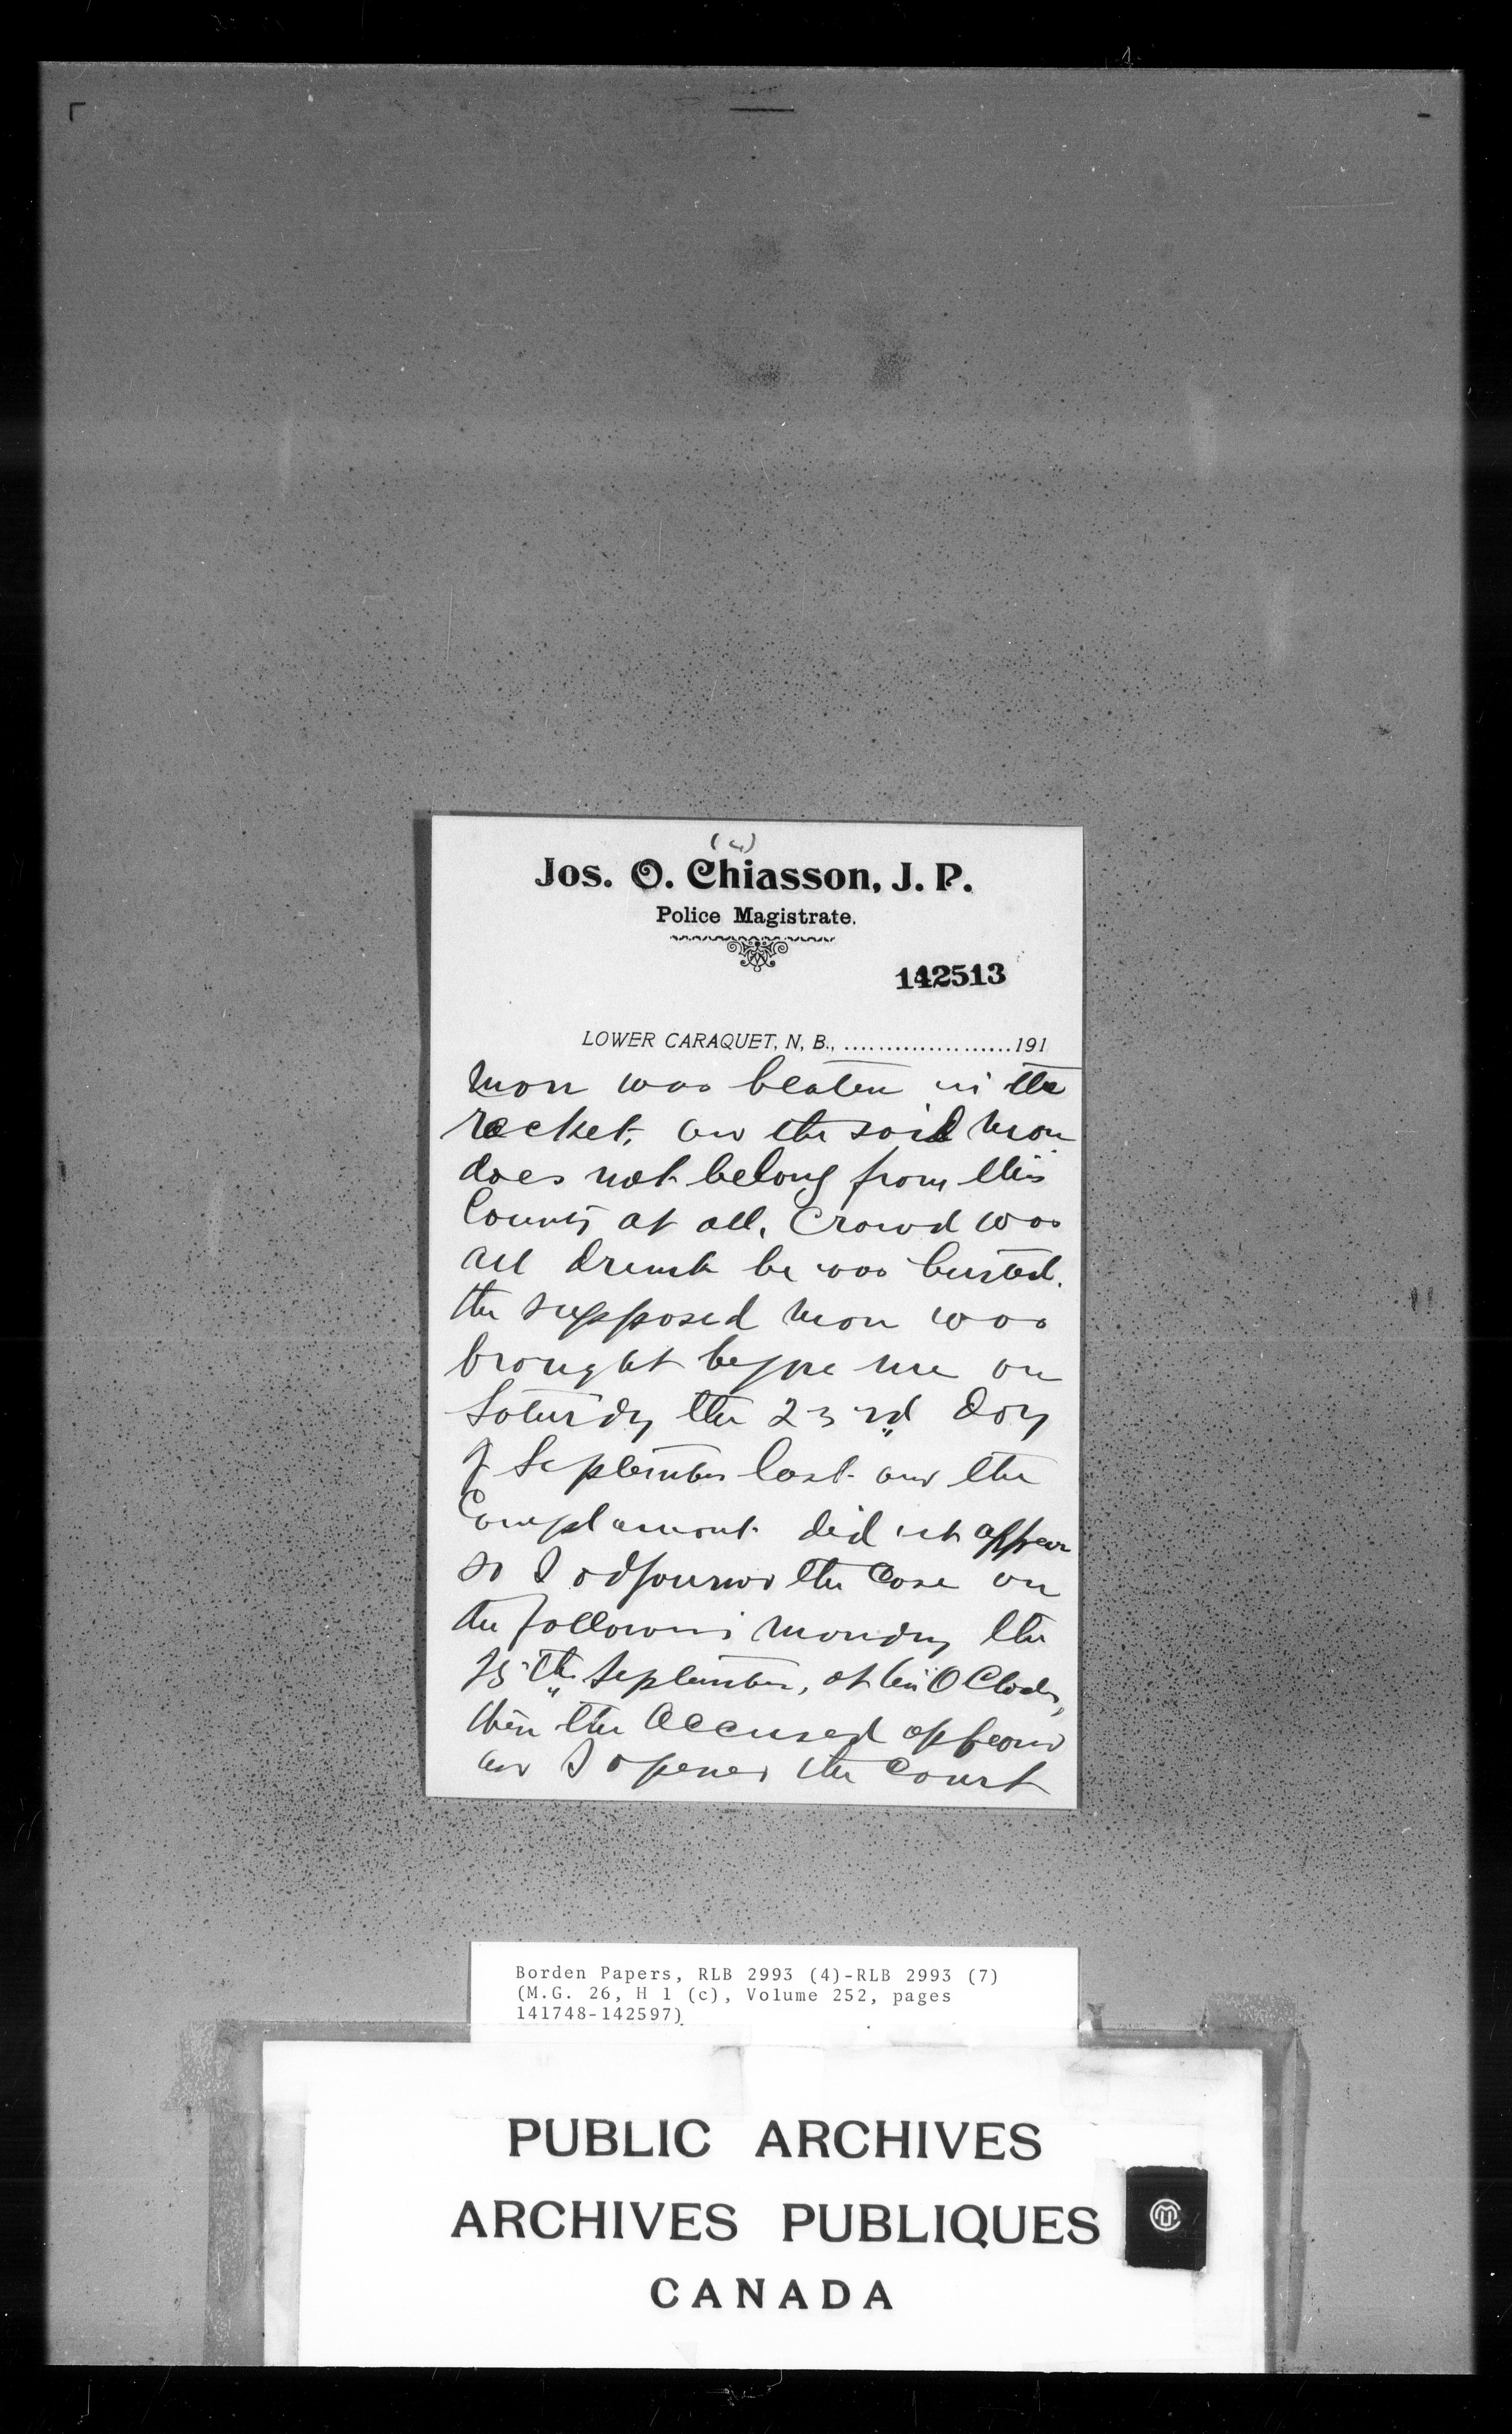 (4)
Jos. O. Chiasson, J. P.
Police Magistrate.
142513
LOWER CARAQUET, N, B., .....................191
man was beaten in the
racket, an the said man
does not belong from this
County at all. Crowd was
all drunk he was busted.
the supposed man was
brought before me on
Saturdy the 23rd day
of September last and the
Complainant did not appear
so I adjourned the Case on
the following monday the
25th September, at ten O Clock,
then the accused appeard
and I opened the Court
Borden Papers, RLB 2993 (4)-RLB 2993 (7)
(M.G. 26, H 1 (c), Volume 252, pages
141748-142597)
PUBLIC ARCHIVES
ARCHIVES PUBLIQUES
CANADA